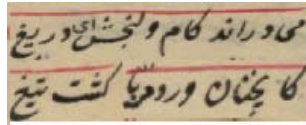 می دراند کام و لنجش ای دریغ
کانچنان ورد مربّا کشت تیغ